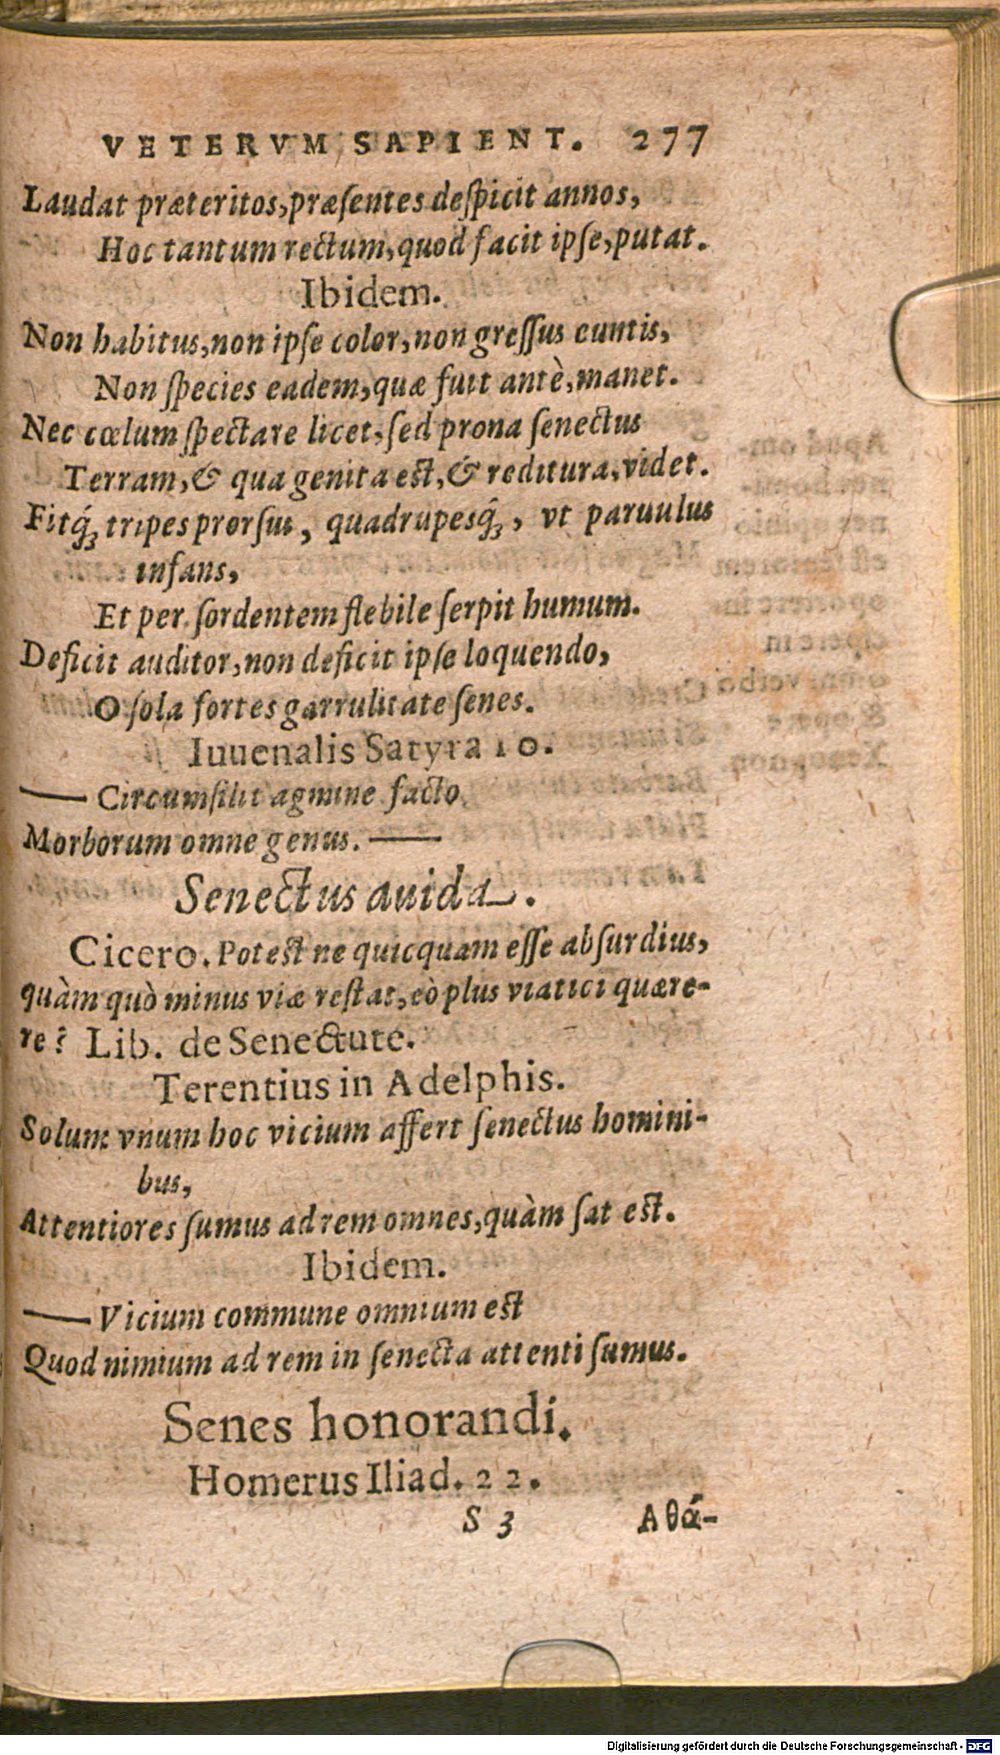 VETERVM SAPIENT. 277
Laudat præteritos,præſentes deſpicit annos,
Hoc tantum rectum,quod facit ipſe,putat.
Ibidem.
Non habitus,non ipſe color,non greſſus euntis,
Non ſpecies eadem,quæ fuit antè,manet.
Nec cœlum ſpectare licet,ſed prona ſenectus
Terram,& qua genita est,& reditura,videt.
Fitq́; tripes prorſus, quadrupesq́;, vt paruulus
infans,
Et per ſordentem flebile ſerpit humum.
Deficit auditor,non deficit ipſe loquendo,
O ſola fortes garrulitate ſenes.
Iuuenalis Satyra 10.
— Circumſilit agmine facto
Morborum omne genus. —
Senectus auida.
Cicero. Potest ne quicquam eſſe abſurdius,
quàm quò minus viæ reſtat,eò plus viatici quære-
re? Lib. de Senectute.
Terentius in Adelphis.
Solum vnum hoc vicium affert ſenectus homini-
bus,
Attentiores ſumus ad rem omnes,quàm ſat est.
Ibidem.
— Vicium commune omnium est
Quod nimium ad rem in ſenecta attenti ſumus.
Senes honorandi.
Homerus Iliad. 22.
S 3 Αθά-
Digitalisierung gefördert durch die Deutsche Forschungsgemeinschaft - DFG